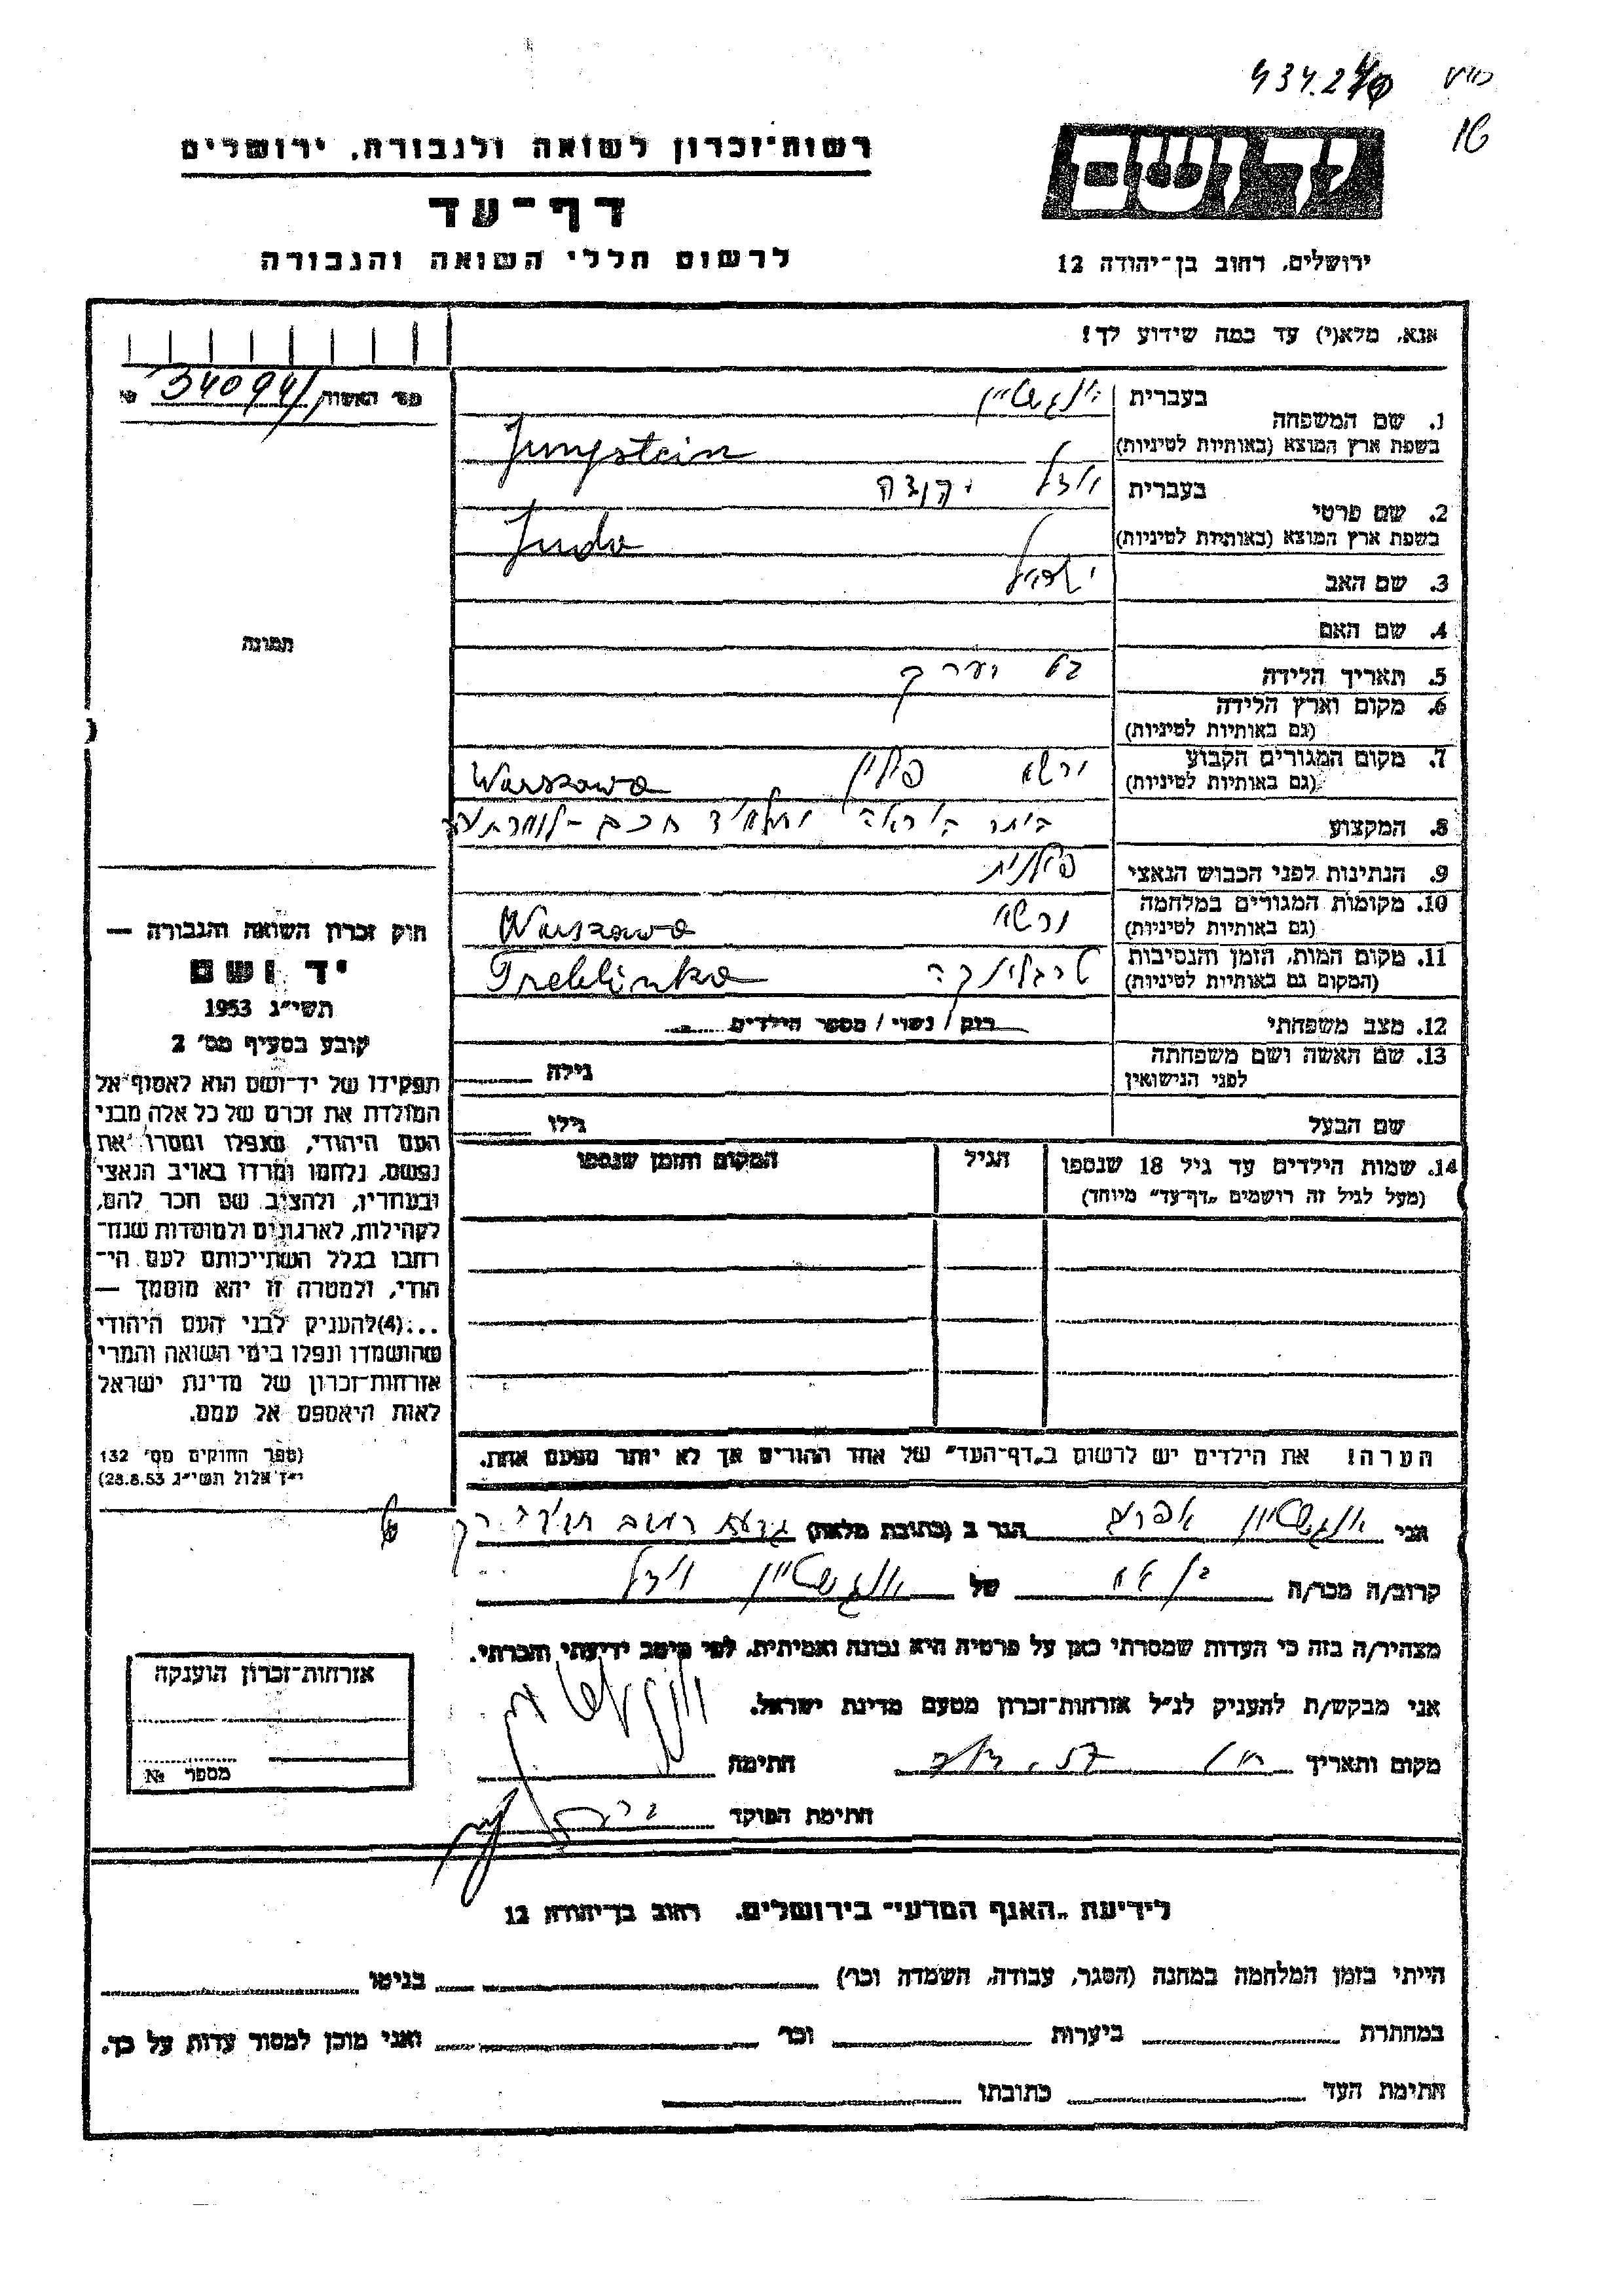 434.240
16
רשות־זכרון לשואה ולגבורה, ירושלים
דף־עד
לרשום חללי השואה והגבורה
יד ושם
ירושלים, רחוב בן־יהודה 12
אנא, מלא(י) עד כמה שידוע לך!
מס' האשור 34094
№
1. שם המשפחה
בעברית יונגשטיין
בשפת ארץ המוצא (באותיות לטיניות) Jungstein
2. שם פרטי
בעברית יודל יהודה
בשפת ארץ המוצא (באותיות לטיניות) Juda
3. שם האב ישראל
4. שם האם
תמונה
5. תאריך הלידה
6. מקום וארץ הלידה
(גם באותיות לטיניות)
7. מקום המגורים הקבוע ורשא פולין Warszawa
(גם באותיות לטיניות)
8. המקצוע
9. הנתינות לפני הכבוש הנאצי פולנית
10. מקומות המגורים במלחמה ורשא Warszawa
(גם באותיות לטיניות)
11. מקום המות, הזמן והנסיבות טרבלינקה Treblinka
(המקום גם באותיות לטיניות)
12. מצב משפחתי רוק / נשוי / מספר הילדים
13. שם האשה ושם משפחתה
לפני הנישואין
גילה
שם הבעל גילו
14. שמות הילדים עד גיל 18 שנספו
(מעל לגיל זה רושמים „דף־עד" מיוחד)
הגיל
המקום והזמן שנספו
חוק זכרון השואה והגבורה —
יד ושם
תשי״ג 1953
קובע בסעיף מס' 2
תפקידו של יד־ושם הוא לאסוף אל
המולדת את זכרם של כל אלה מבני
העם היהודי, שנפלו ומסרו את
נפשם, נלחמו ומרדו באויב הנאצי
ובעוזריו, ולהציב שם וזכר להם,
לקהילות, לארגונים ולמוסדות שנח־
רבו בגלל השתייכותם לעם הי־
הודי, ולמטרה זו יהא מוסמך —
...(4)להעניק לבני העם היהודי
שהושמדו ונפלו בימי השואה והמרי
אזרחות־זכרון של מדינת ישראל
לאות היאספם אל עמם.
(ספר החוקים מס' 132
י״ז אלול תשי״ג 28.8.53)
הערה! את הילדים יש לרשום ב„דף־העד" של אחד ההורים אך לא יותר מפעם אחת.
אני יונגשטיין אפרים הגר ב (כתובת מלאה)
קרוב/ה מכר/ה בן אח של יונגשטיין יודל
מצהיר/ה בזה כי העדות שמסרתי כאן על פרטיה היא נכונה ואמיתית, לפי מיטב ידיעתי והכרתי.
אני מבקש/ת להעניק לנ״ל אזרחות־זכרון מטעם מדינת ישראל.
מקום ותאריך חתימה
חתימת הפוקד
אזרחות־זכרון הוענקה
מספר №
לידיעת „האגף המדעי" בירושלים, רחוב בן־יהודה 12
הייתי בזמן המלחמה במחנה (הסגר, עבודה, השמדה וכו') בגיטו
במחתרת ביערות וכו' ואני מוכן למסור עדות על כך.
חתימת העד כתובתו